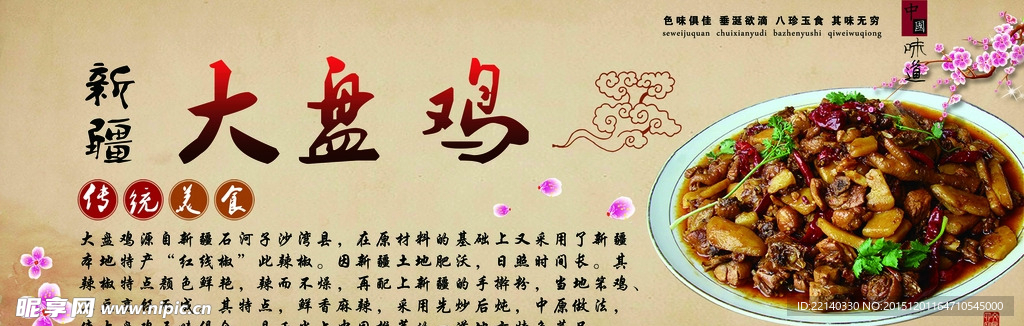 色味俱佳 垂涎欲滴 八珍玉食 其味无穷
seweijuquan chuixianyudi bazhenyushi qiweiwuqiong
中國
味道
新疆
大盘鸡
传统美食
大盘鸡源自新疆石河子沙湾县，在原材料的基础上又采用了新疆
本地特产“红线椒”此辣椒。因新疆土地肥沃，日照时间长。其
辣椒特点颜色鲜艳，辣而不燥，再配上新疆的手擀粉，当地笨鸡、
其特点，鲜香麻辣，采用先炒后炖，中原做法，
昵享网 www.nipic.cn
www.nipic.com
ID:22140330 NO:20151201164710545000